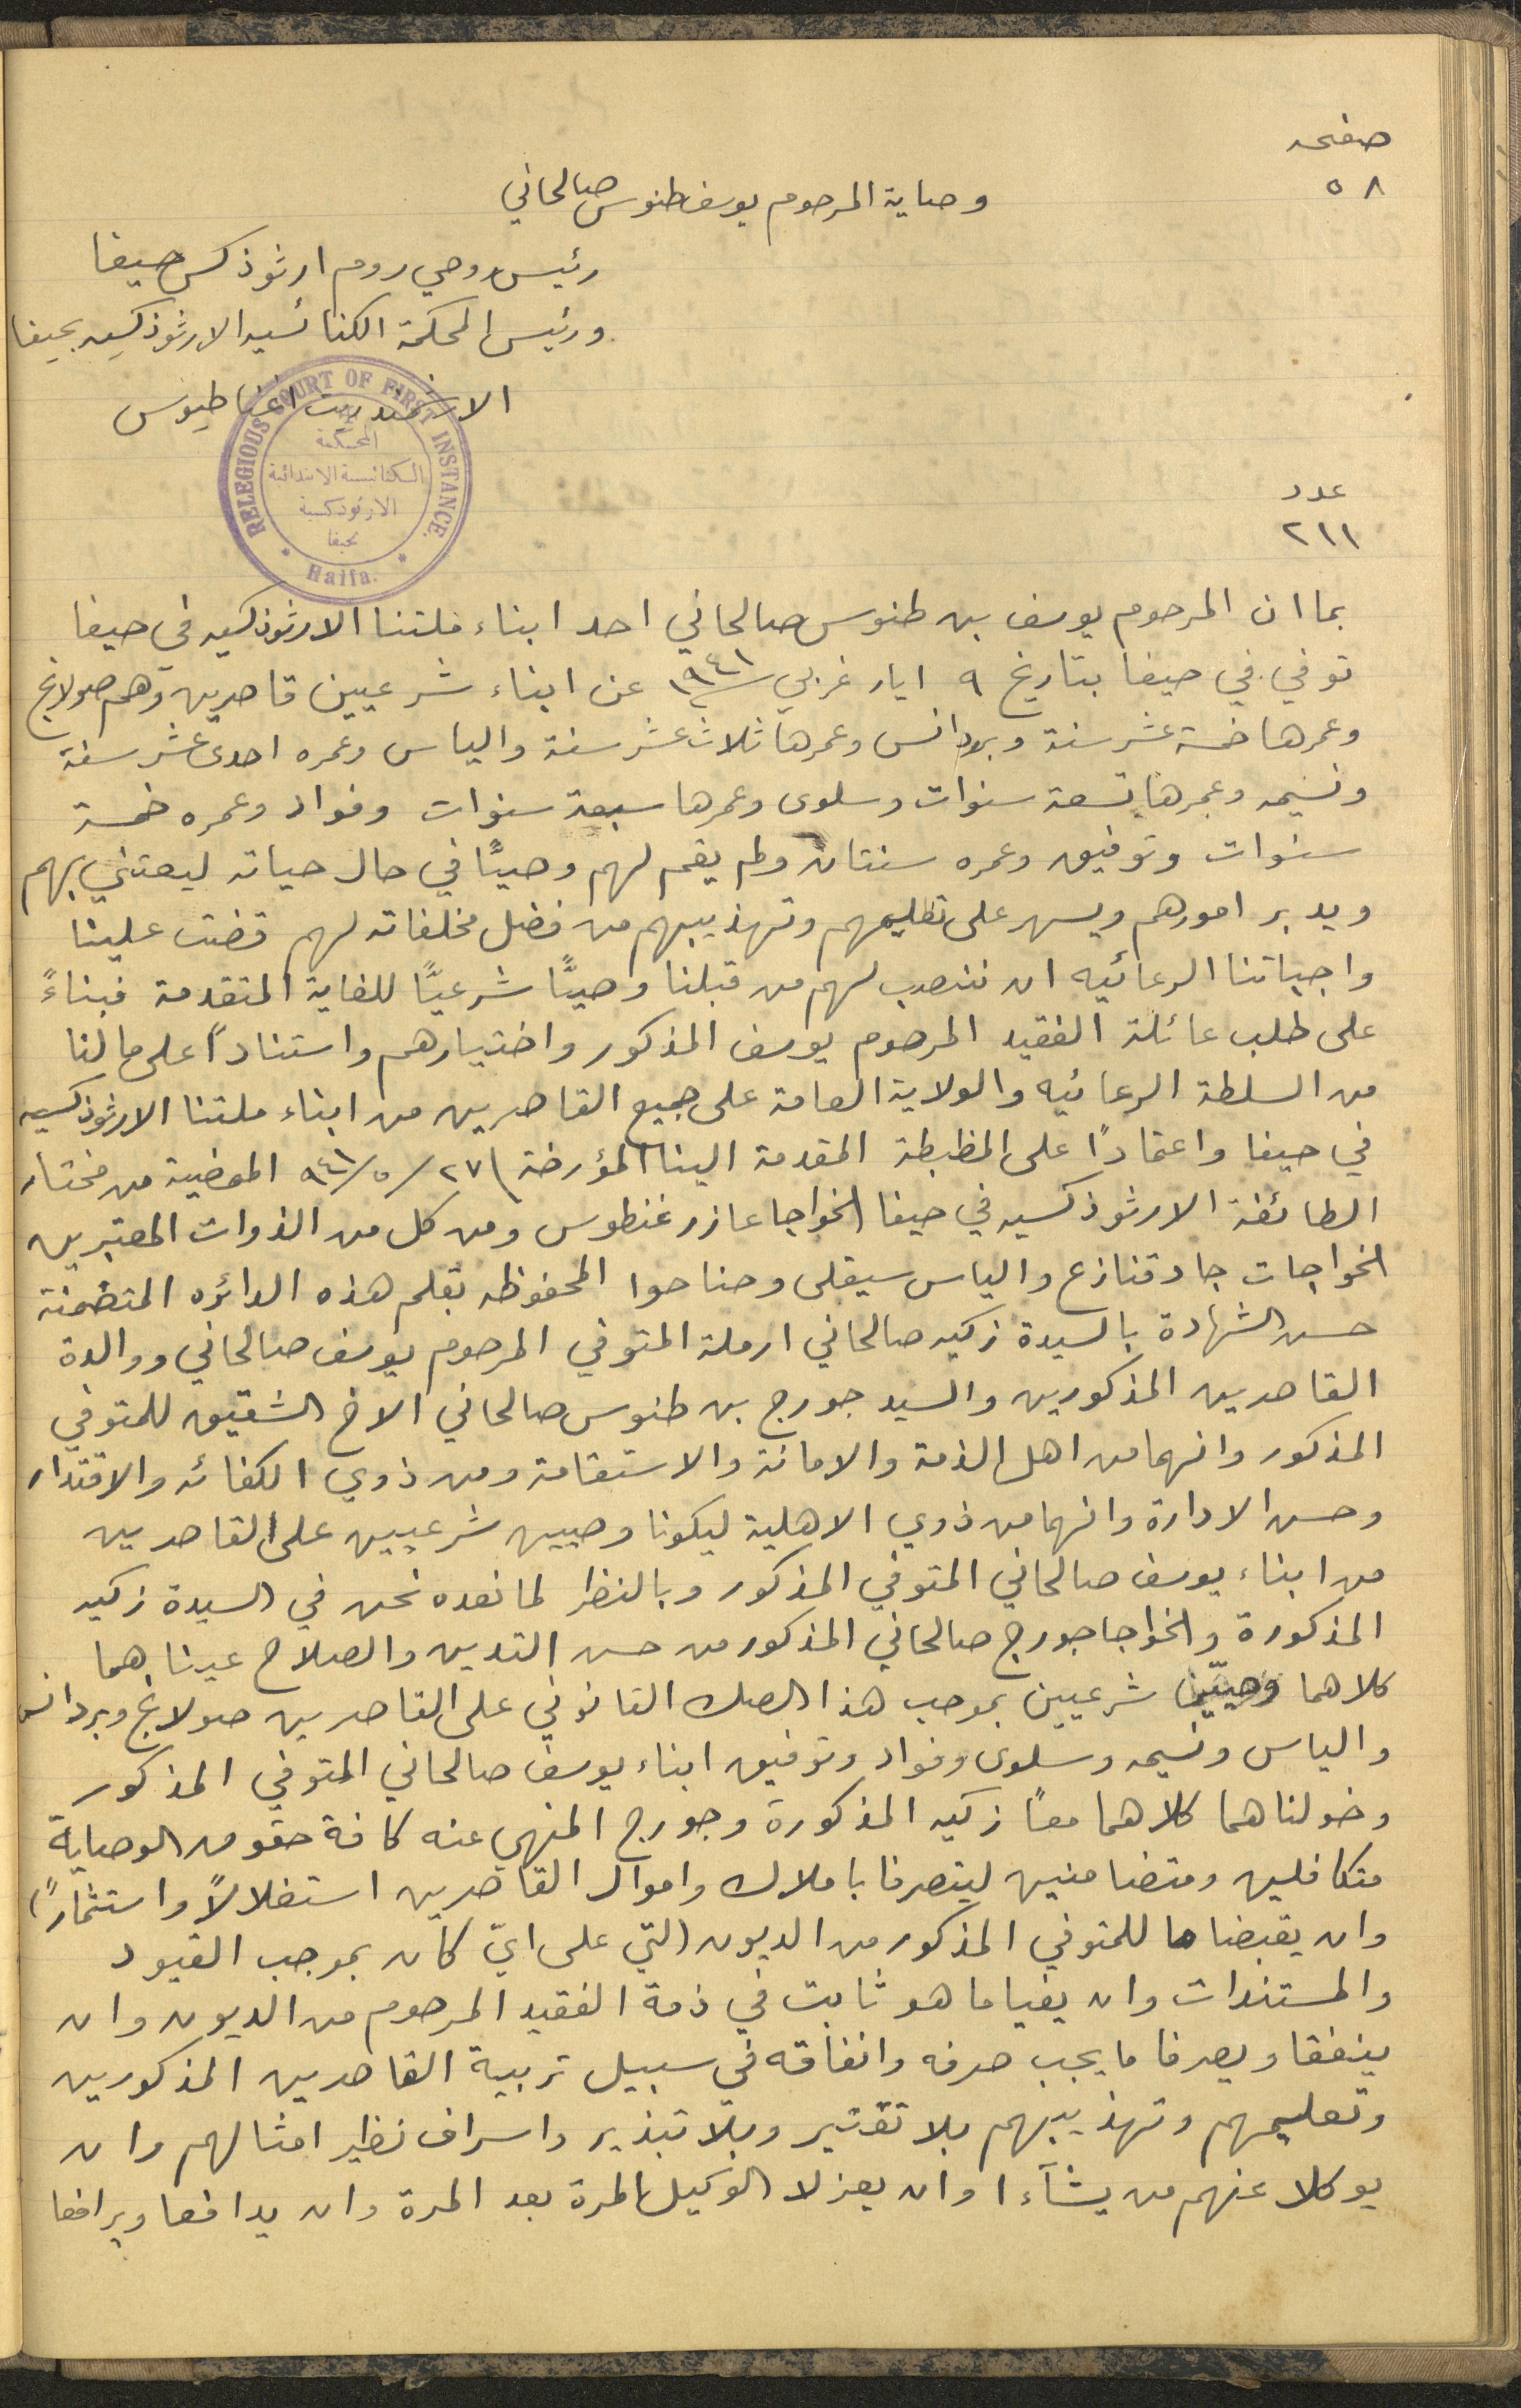 صفحه
٥٨
وصاية المرحوم يوسف طنوس صالحاني
رئيس روحي روم ارثوذكس حيفا
ورئيس المحكمة الكنائسيه الارثوذكسيه بحيفا
الارشمندريت اغناطيوس
RELEGIOUS COURT OF FIRST INSTANCE.
المحكمة
الكنائسية الابتدائية
الارثوذكسية
بحيفا
Haifa.
عدد
٢١١
بما ان المرحوم يوسف بن طنوس صالحاني احد ابناء ملتنا الارثوذكسيه في حيفا
توفي في حيفا بتاريخ ٩ ايار غربي ١٩٤١ عن ابناء شرعيين قاصرين وهم صولانج
وعمرها خمسة عشر سنة وبردانس وعمرها ثلاث عشر سنة والياس وعمره احدى عشر سنة
ونسيمه وعمرها تسعة سنوات وسلوى وعمرها سبعة سنوات وفواد وعمره خمسة
سنوات وتوفيق وعمره سنتان ولم يقم لهم وصيًّا في حال حياته ليعتني بهم
ويدبر امورهم ويسهر على تعليمهم وتهذيبهم من فضل مخلفاته لهم قضت علينا
واجباتنا الرعائيه ان ننصب لهم من قبلنا وصيًّا شرعيًّا للغاية المتقدمة فبناءً
على طلب عائلة الفقيد المرحوم يوسف المذكور واختيارهم واستنادًا على مالنا
من السلطة الرعائيه والولاية العامة على جميع القاصرين من ابناء ملتنا الارثوذكسيه
في حيفا واعتمادًا على المظبطة المقدمة الينا المؤرخة ٢٧/٥/٩٤١ الممضية من مختار
الطائفة الارثوذكسيه في حيفا الخواجا عازر غنطوس ومن كل من الذوات المعتبرين
الخواجات جاد قنازع والياس سيقلي وحنا حوا المحفوظه بقلم هذه الدائره المتضمنة
حسن الشهادة بالسيدة زكيه صالحاني ارملة المتوفي المرحوم يوسف صالحاني ووالدة
القاصرين المذكورين والسيد جورج بن طنوس صالحاني الاخ الشقيق للمتوفي
المذكور وانهما من اهل الذمة والامانة والاستقامة ومن ذوي الكفائه والاقتدار
وحسن الادارة وانهما من ذوي الاهلية ليكونا وصيين شرعيين على القاصرين
من ابناء يوسف صالحاني المتوفي المذكور وبالنظر لما نعده نحن في السيدة زكيه
المذكورة والخواجا جورج صالحاني المذكور من حسن التدين والصلاح عيناهما
كلاهما وصيّين شرعيين بموجب هذا الصك القانوني على القاصرين صولانج وبردانس
والياس ونسيمه وسلوى وفواد وتوفيق ابناء يوسف صالحاني المتوفي المذكور
وخولناهما كلاهما معًا زكيه المذكورة وجورج المنهي عنه كافة حقوق الوصاية
متكافلين ومتضامنين ليتصرفا باملاك واموال القاصرين استغلالاً واستثمارًا
وان يقبضا ما للمتوفي المذكور من الديون التي على ايّ كان بموجب القيود
والمستندات وان يفيا ما هو ثابت في ذمة الفقيد المرحوم من الديون وان
ينفقا ويصرفا ما يجب صرفه وانفاقه في سبيل تربية القاصرين المذكورين
وتعليمهم وتهذيبهم بلا تقتير وبلا تبذير واسراف نظير امثالهم وان
يوكلا عنهم من يشآءا وان يعزلا الوكيل المرة بعد المرة وان يدافعا ويرافعا